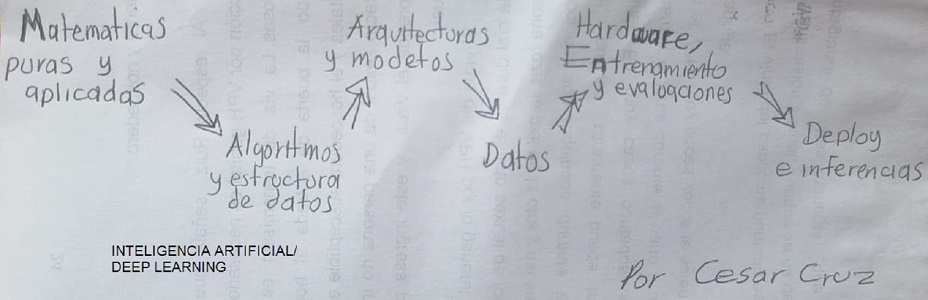 Matematicas
puras y
aplicadas
Algoritmos
y estructura
de datos
Arquitecturas
y modelos
Datos
Hardware,
Entrenamiento
y evaluaciones
Deploy
e inferencias
INTELIGENCIA ARTIFICIAL/
DEEP LEARNING
Por Cesar Cruz